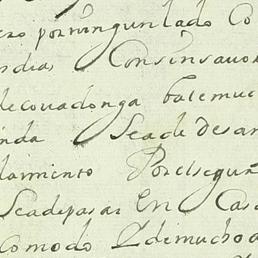 ero por ningun lado Co
rdia, Consinsavor
decouadonga bale muc
nda Seade desan
damiento Por el segun
Seadepasar En Casa
Comodo Q demucho a